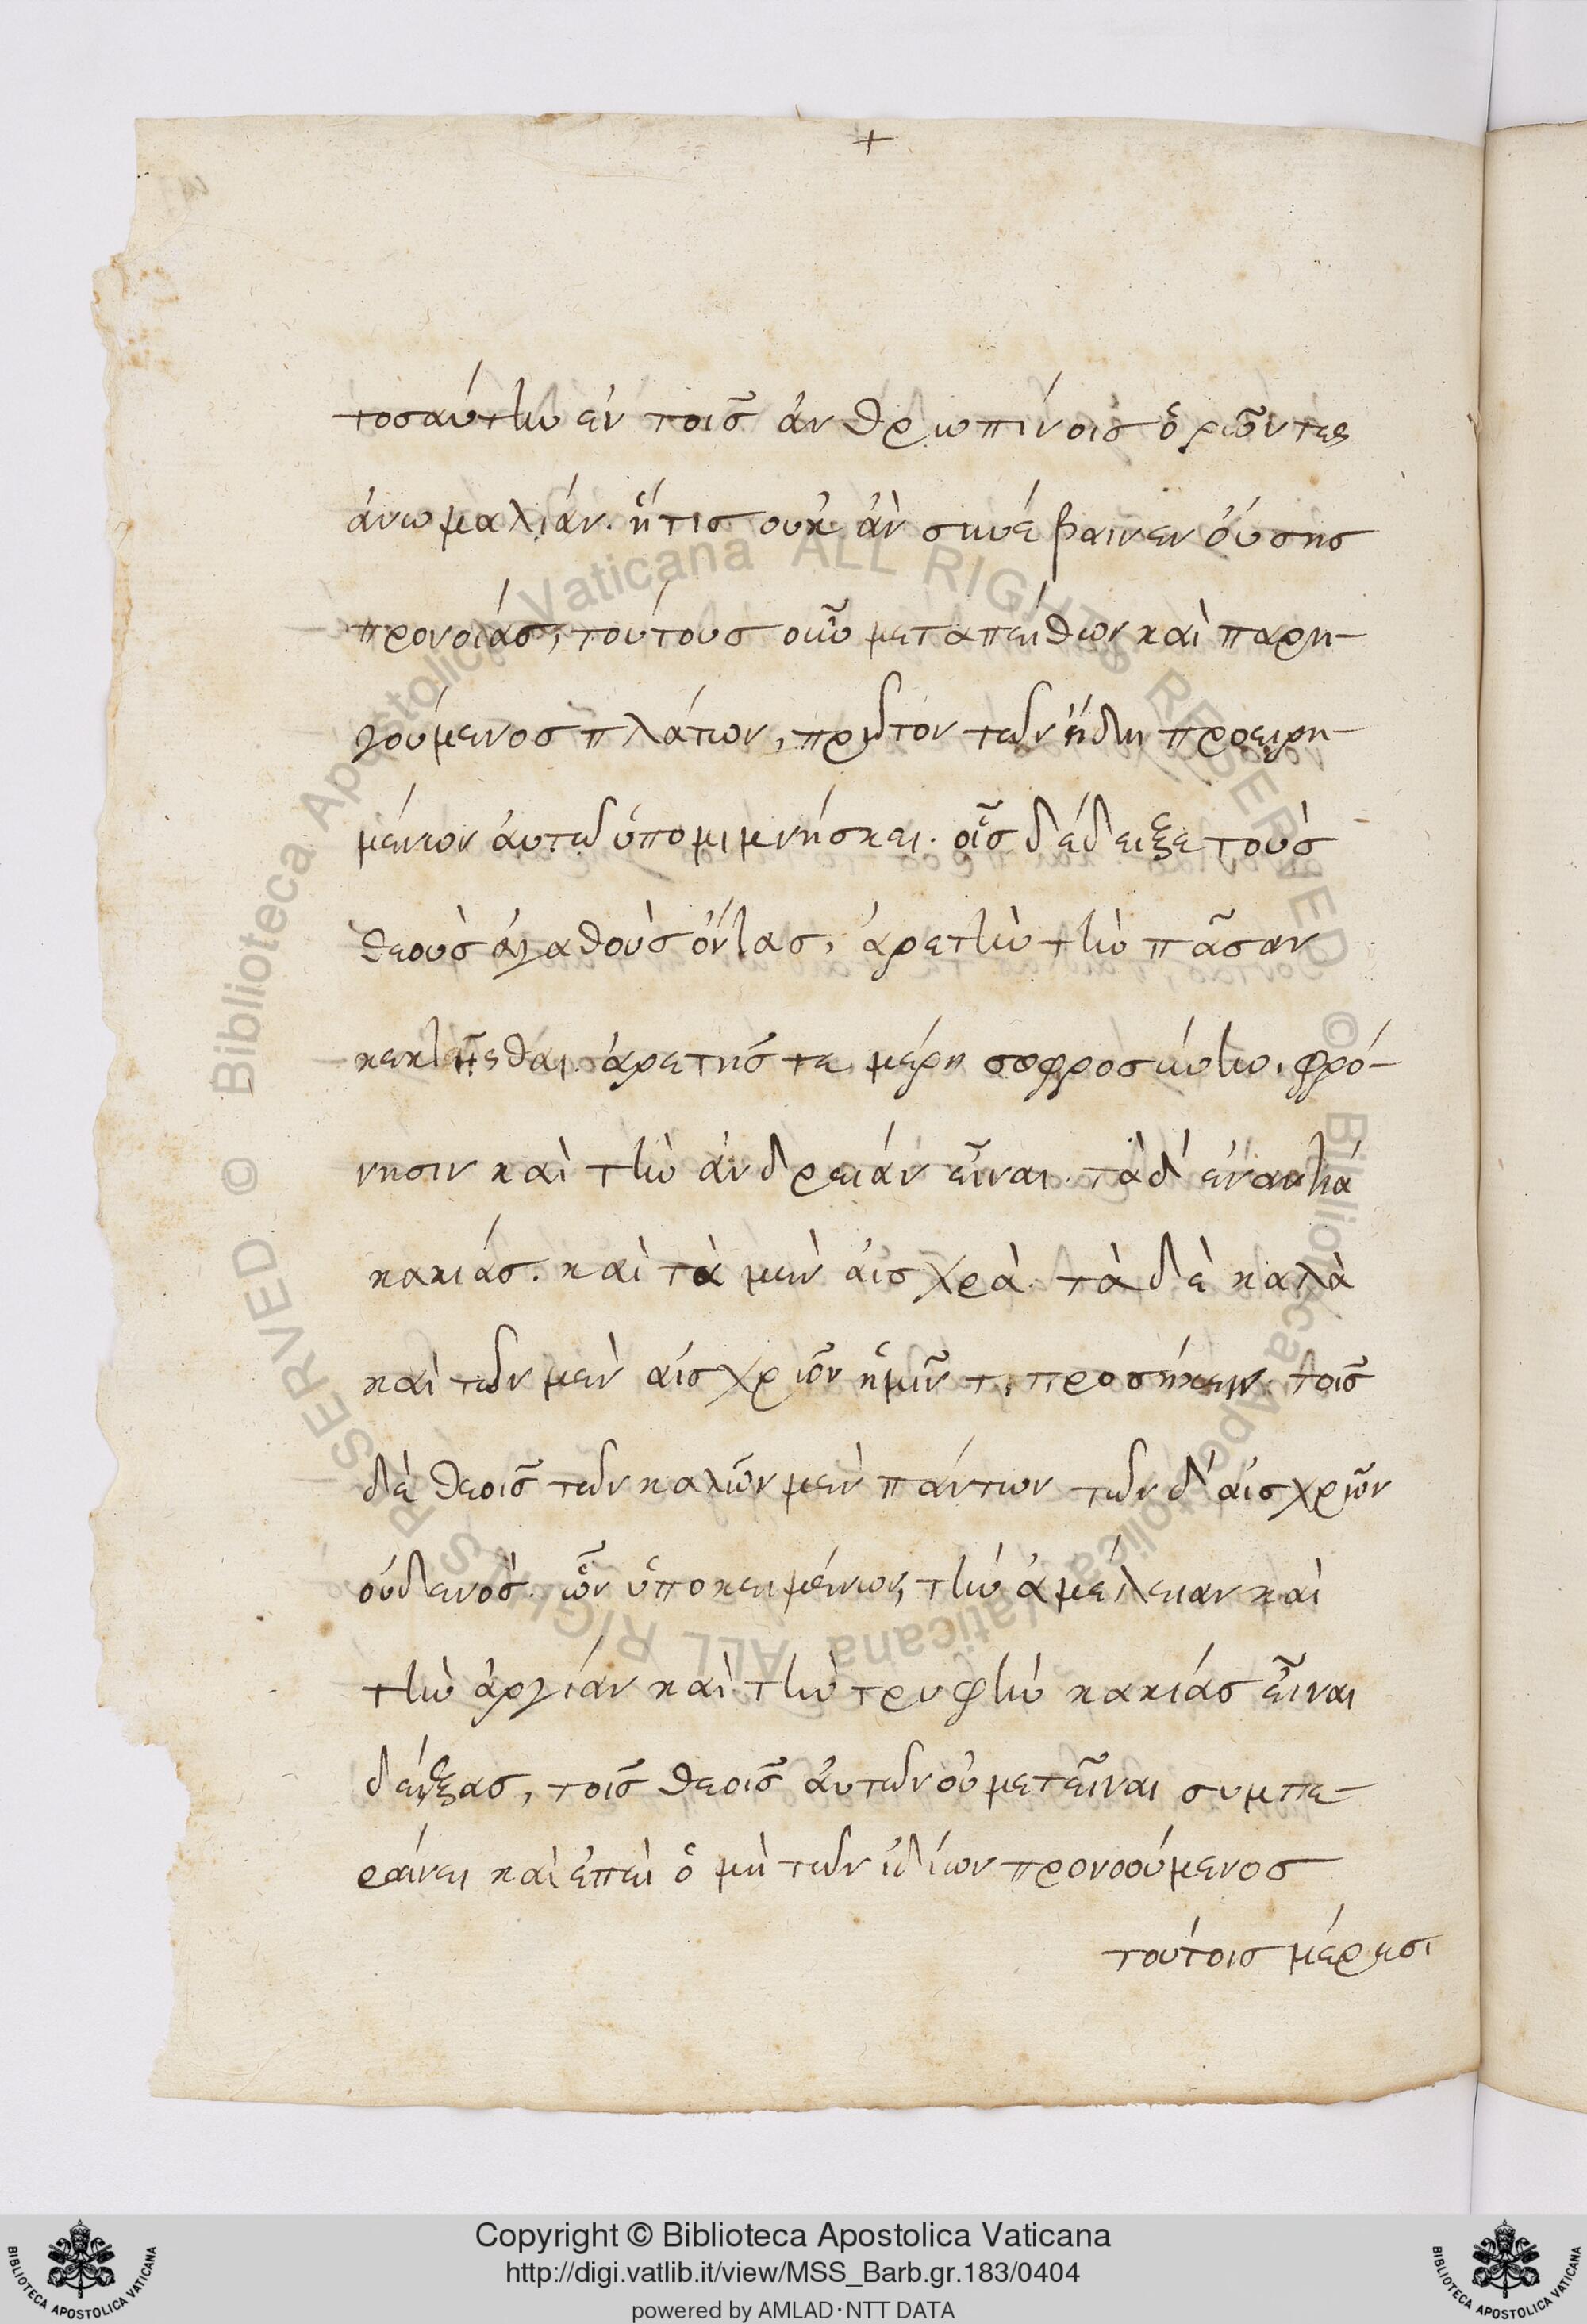 +
τοσαύτην ἐν τοῖς ἀνθρωπίνοις ὁρῶντες
ἀνωμαλίαν. ἥτις οὐκ ἂν συνέβαινεν οὔσης
προνοίας, τούτους οὖν μεταπείθων καὶ παρη-
γούμενος πλάτων, πρῶτον τῶν ἤδη προειρη-
μένων αὐτῶ ὑπομιμνήσκει. οἷς δέδειξε τοὺς
θεοὺς ἀγαθοὺς ὄντας, ἀρετὴν τὴν πᾶσαν
κεκτῆσθαι. ἀρετῆς τε μέρη σοφροσύνην, φρό-
νησιν καὶ τὴν ἀνδρείαν εἶναι. τὰ δ' ἐναντία
κακίας. καὶ τὰ μὲν αἰσχρὰ. τὰ δὲ καλὰ
καὶ τῶν μὲν αἰσχρῶν ἡμῖν τι προσήκειν. τοῖς
δὲ θεοῖς τῶν καλῶν μὲν πάντων τῶν δ' αἰσχρῶν
οὐδενός. ὧν ὑποκειμένων, τὴν ἀμέλειαν καὶ
τὴν ἀργίαν καὶ τὴν τρυφὴν κακίας εἶναι
δείξας, τοῖς θεοῖς αὐτῶν οὐ μετεῖναι συμπε-
ραίνει καὶ ἐπεὶ ὁ μὴ τῶν ἰδίων προνοούμενος
τούτοις μέρεσι
Copyright © Biblioteca Apostolica Vaticana
http://digi.vatlib.it/view/MSS_Barb.gr.183/0404
powered by AMLAD·NTT DATA
BIBLIOTECA APOSTOLICA VATICANA
BIBLIOTECA APOSTOLICA VATICANA
© Biblioteca Apostolica Vaticana ALL RIGHTS RESERVED
© Biblioteca Apostolica Vaticana ALL RIGHTS RESERVED